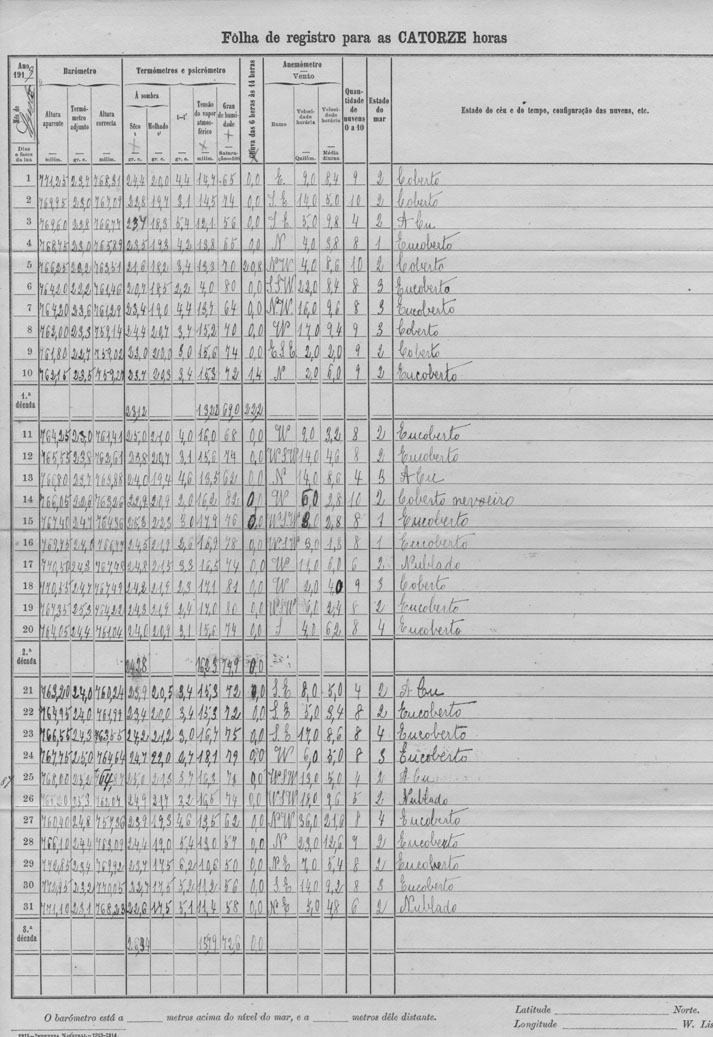 Fôlha de registro para as CATORZE horas
Ano 191
Mês de
Dias e fases da lua
Barómetro
Altura aparente milím.
Termómetro adjunto gr. c.
Altura correcta milím.
Termómetros e psicrómetro
À sombra
Sêco t gr. c.
Molhado t' gr. c.
t-t' gr. c.
Tensão do vapor atmosférico milím.
Grau de humidade Saturação=100
Chuva das 6 horas às 14 horas
Anemómetro
Vento
Rumo
Velocidade horária Quilóm.
Velocidade horária Média diurna
Quantidade de nuvens 0 a 10
Estado do mar
Estado do céu e do tempo, configuração das nuvens, etc.
1 771,25 23,7 768,31 24,4 20,0 4,4 14,7 65 0,0 E. 9,0 8,4 9 2 Coberto
2 769,95 23,0 767,09 22,8 19,7 3,1 14,5 74 0,0 S.E 14,0 5,0 10 2 Coberto
3 769,60 23,8 766,77 23,7 18,3 5,4 12,1 56 0,0 S.E 5,0 9,8 4 2 A Cu
4 768,75 23,0 765,89 23,5 19,3 4,2 13,8 65 0,0 N 4,0 3,8 8 1 Encoberto
5 766,25 22,2 763,51 21,6 18,2 3,4 13,3 70 20,8 NW 4,0 8,6 10 2 Coberto
6 764,20 22,2 761,46 20,7 18,5 2,2 80 0,0 SSW 22,0 8,4 8 3 Encoberto
7 764,20 23,6 761,29 23,4 19,0 4,4 13,7 64 0,0 N.W. 16,0 9,6 8 3 Encoberto
8 762,00 23,3 759,14 24,4 20,7 3,7 15,2 70 0,0 W 17,0 9,4 9 3 Coberto
9 761,80 22,7 759,02 23,0 20,0 3,0 15,6 74 0,0 E.S.E 2,0 2,0 9 2 Coberto
10 762,15 23,5 759,27 23,7 20,3 3,4 15,3 72 1,4 N 2,0 6,0 9 2 Encoberto
1.ª década 13,22 69,0 22,2
11 764,25 23,0 761,41 25,0 21,0 4,0 16,0 68 0,0 W 9,0 3,2 8 2 Encoberto
12 765,55 23,8 762,61 23,8 20,7 3,1 15,6 74 0,0 WSW 14,0 4,6 8 2 Encoberto
13 766,80 23,7 763,88 24,0 19,4 4,6 13,5 62 0,0 N 14,0 8,6 4 3 A Cu
14 766,05 22,8 763,26 22,9 20,9 2,0 16,2 82 0,0 W 6,0 2,8 10 2 Coberto nevoeiro
15 767,40 24,7 764,36 25,3 22,3 3,0 17,9 76 0,0 WSW 2,8 8 1 Encoberto
16 769,75 24,0 24,5 21,9 2,6 16,9 78 0,0 WSW 3,0 1,8 8 1 Encoberto
17 770,50 24,3 24,8 21,5 3,3 16,5 74 0,0 W 14,0 6,0 6 2 Nublado
18 24,7 767,49 24,2 21,9 2,3 17,1 81 0,0 W 2,0 4,0 9 3 Coberto
19 767,35 25,3 764,22 24,3 21,9 2,4 17,0 80 0,0 WSW 6,0 2,4 8 2 Encoberto
20 764,05 24,4 761,04 24,0 20,9 3,1 15,6 74 0,0 S 4,0 6,2 8 4 Encoberto
2.ª década 24,28 16,23 74,9 0,0
21 763,20 24,0 760,24 23,9 20,5 3,4 15,3 72 0,0 S.E 8,0 5,0 4 2 A Cu
22 764,95 24,0 761,99 23,4 20,0 3,4 15,3 72 0,0 S.E 5,0 3,4 8 2 Encoberto
23 766,55 24,3 763,55 24,2 21,2 3,0 16,7 75 0,0 S.E 17,0 8,6 8 4 Encoberto
24 767,75 25,0 764,64 24,7 22,0 2,7 18,1 79 0,0 W 6,0 3,0 8 3 Encoberto
25 768,00 25,2 25,0 21,3 3,7 16,3 0,0 WSW 13,0 5,0 4 2 A Cu
26 24,9 21,7 3,2 16,5 74 0,0 WSW 15,0 9,6 5 2 Nublado
27 760,40 24,8 757,36 23,9 19,3 4,6 13,5 62 0,0 N.W 36,0 21,6 8 4 Encoberto
28 766,10 24,4 763,09 24,4 19,0 5,4 13,0 57 0,0 N 23,0 12,6 9 2 Encoberto
29 772,85 23,4 769,92 23,7 17,5 6,2 10,6 50 0,0 N.E 7,0 5,4 8 2 Encoberto
30 23,2 770,05 22,7 17,5 5,2 11,2 56 0,0 S.E 14,0 9,2 8 3 Encoberto
31 771,10 23,1 768,23 22,6 17,5 5,1 11,4 58 0,0 N.E 3,0 4,8 6 2 Nublado
3.ª década 72,6 0,0
O barómetro está a ______ metros acima do nível do mar, e a ______ metros dêle distante.
Latitude ______ Norte.
Longitude ______ W. Lis
IMPRENSA NACIONAL-1913-1914